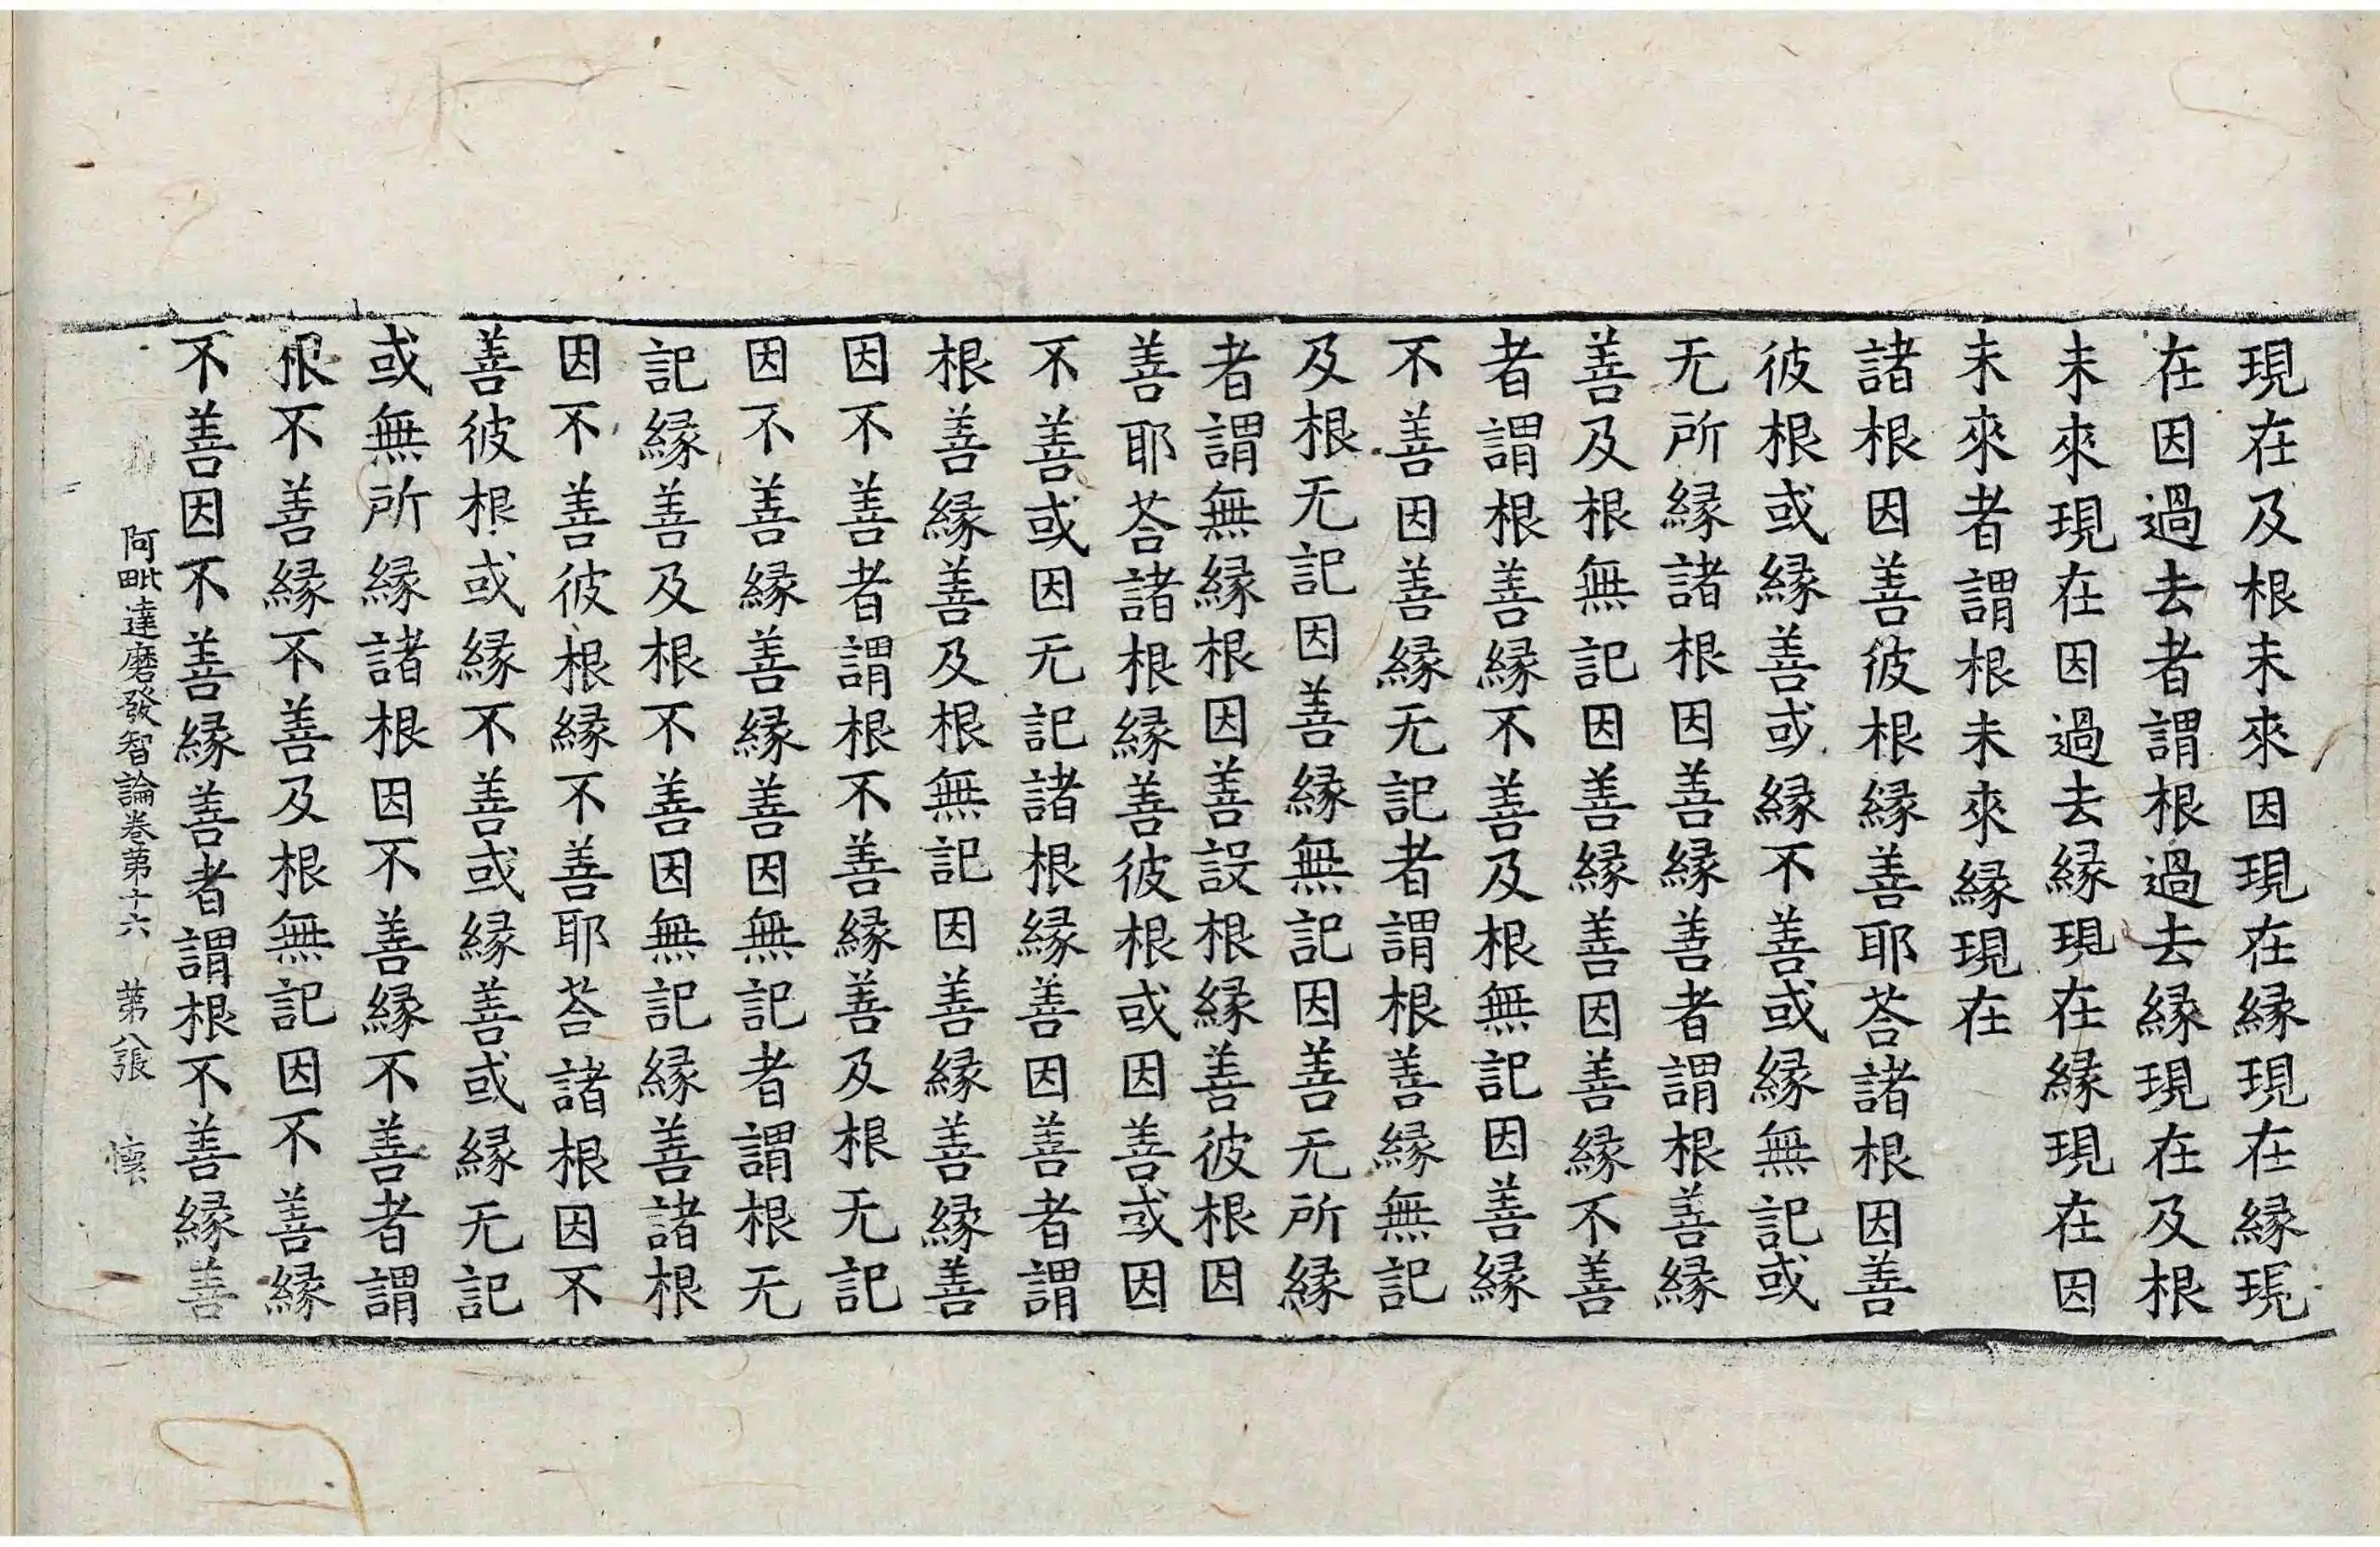 現在及根未來因現在縁現在縁現
在因過去者謂根過去縁現在及根
未來現在因過去縁現在縁現在因
未來者謂根未來縁現在
諸根因善彼根縁善耶荅諸根因善
彼根或縁善或縁不善或縁無記或
无所縁諸根因善縁善者謂根善縁
善及根無記因善縁善因善縁不善
者謂根善縁不善及根無記因善縁
不善因善縁无記者謂根善縁無記
及根无記因善縁無記因善无所縁
者謂無縁根因善設根縁善彼根因
善耶荅諸根縁善彼根或因善或因
不善或因无記諸根縁善因善者謂
根善縁善及根無記因善縁善縁善
因不善者謂根不善縁善及根无記
因不善縁善縁善因無記者謂根无
記縁善及根不善因無記縁善諸根
因不善彼根縁不善耶荅諸根因不
善彼根或縁不善或縁善或縁无記
或無所縁諸根因不善縁不善者謂
根不善縁不善及根無記因不善縁
不善因不善縁善者謂根不善縁善
阿毗達磨發智論卷第十六 第八張 懷